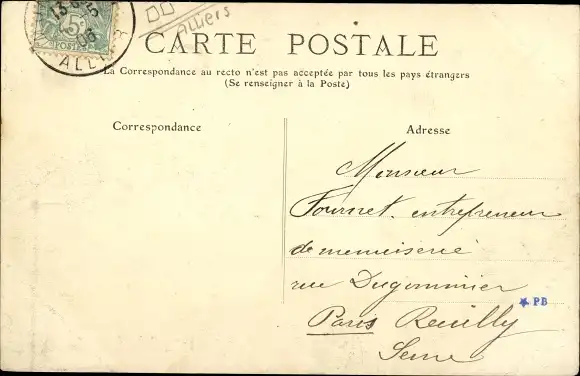 13-8 35
5c
POSTES
06
ALLIER
Alliers
CARTE POSTALE
La Correspondance au recto n'est pas acceptée par tous les pays étrangers
(Se renseigner à la Poste)
Correspondance
Adresse
Monsieur
Fournet. entrepreneur
de menuiserie
rue Dugommier
Paris Reuilly
Seine
PB